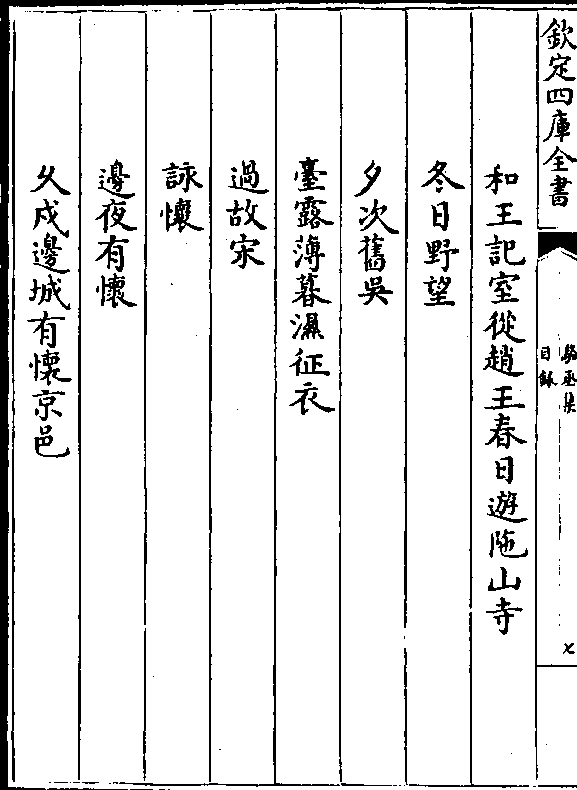 欽定四庫全書
駱丞集
目錄
七
和王記室從趙王春日遊陁山寺
冬日野望
夕次舊吳
臺露薄暮濕征衣
過故宋
詠懷
邊夜有懷
久戍邊城有懷京邑